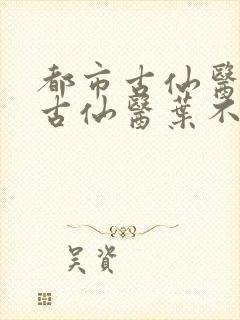 都市古仙醫
古仙醫葉不
吴資